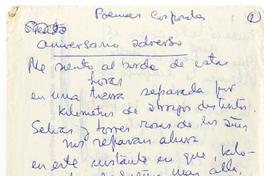 Poemas Corporales
1
aniversario adverso
Me siento al borde de estas
horas
en una tierra separada por
kilometros de abrazos distintos.
Selvas y torres rosas de los días
nos separan ahora
en este instante en que,
más allá,